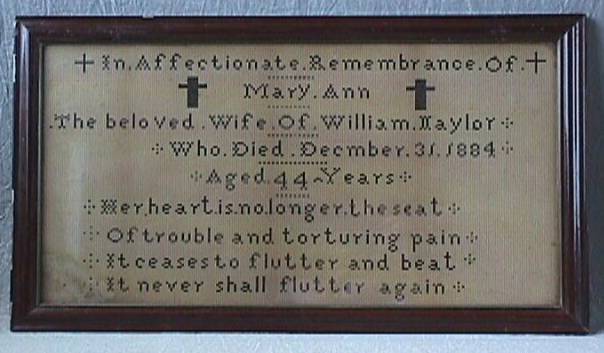 In. Affectionate. Remembrance. Of.
Mary. Ann
.The beloved. Wife. Of. William. Naylor
Who. Died. Decmber. 31. 1884
Aged. 44 ~ Years
Her, heart. is. no. longer. the seat
Of trouble and torturing pain
It ceases to flutter and beat
It never shall flutter again